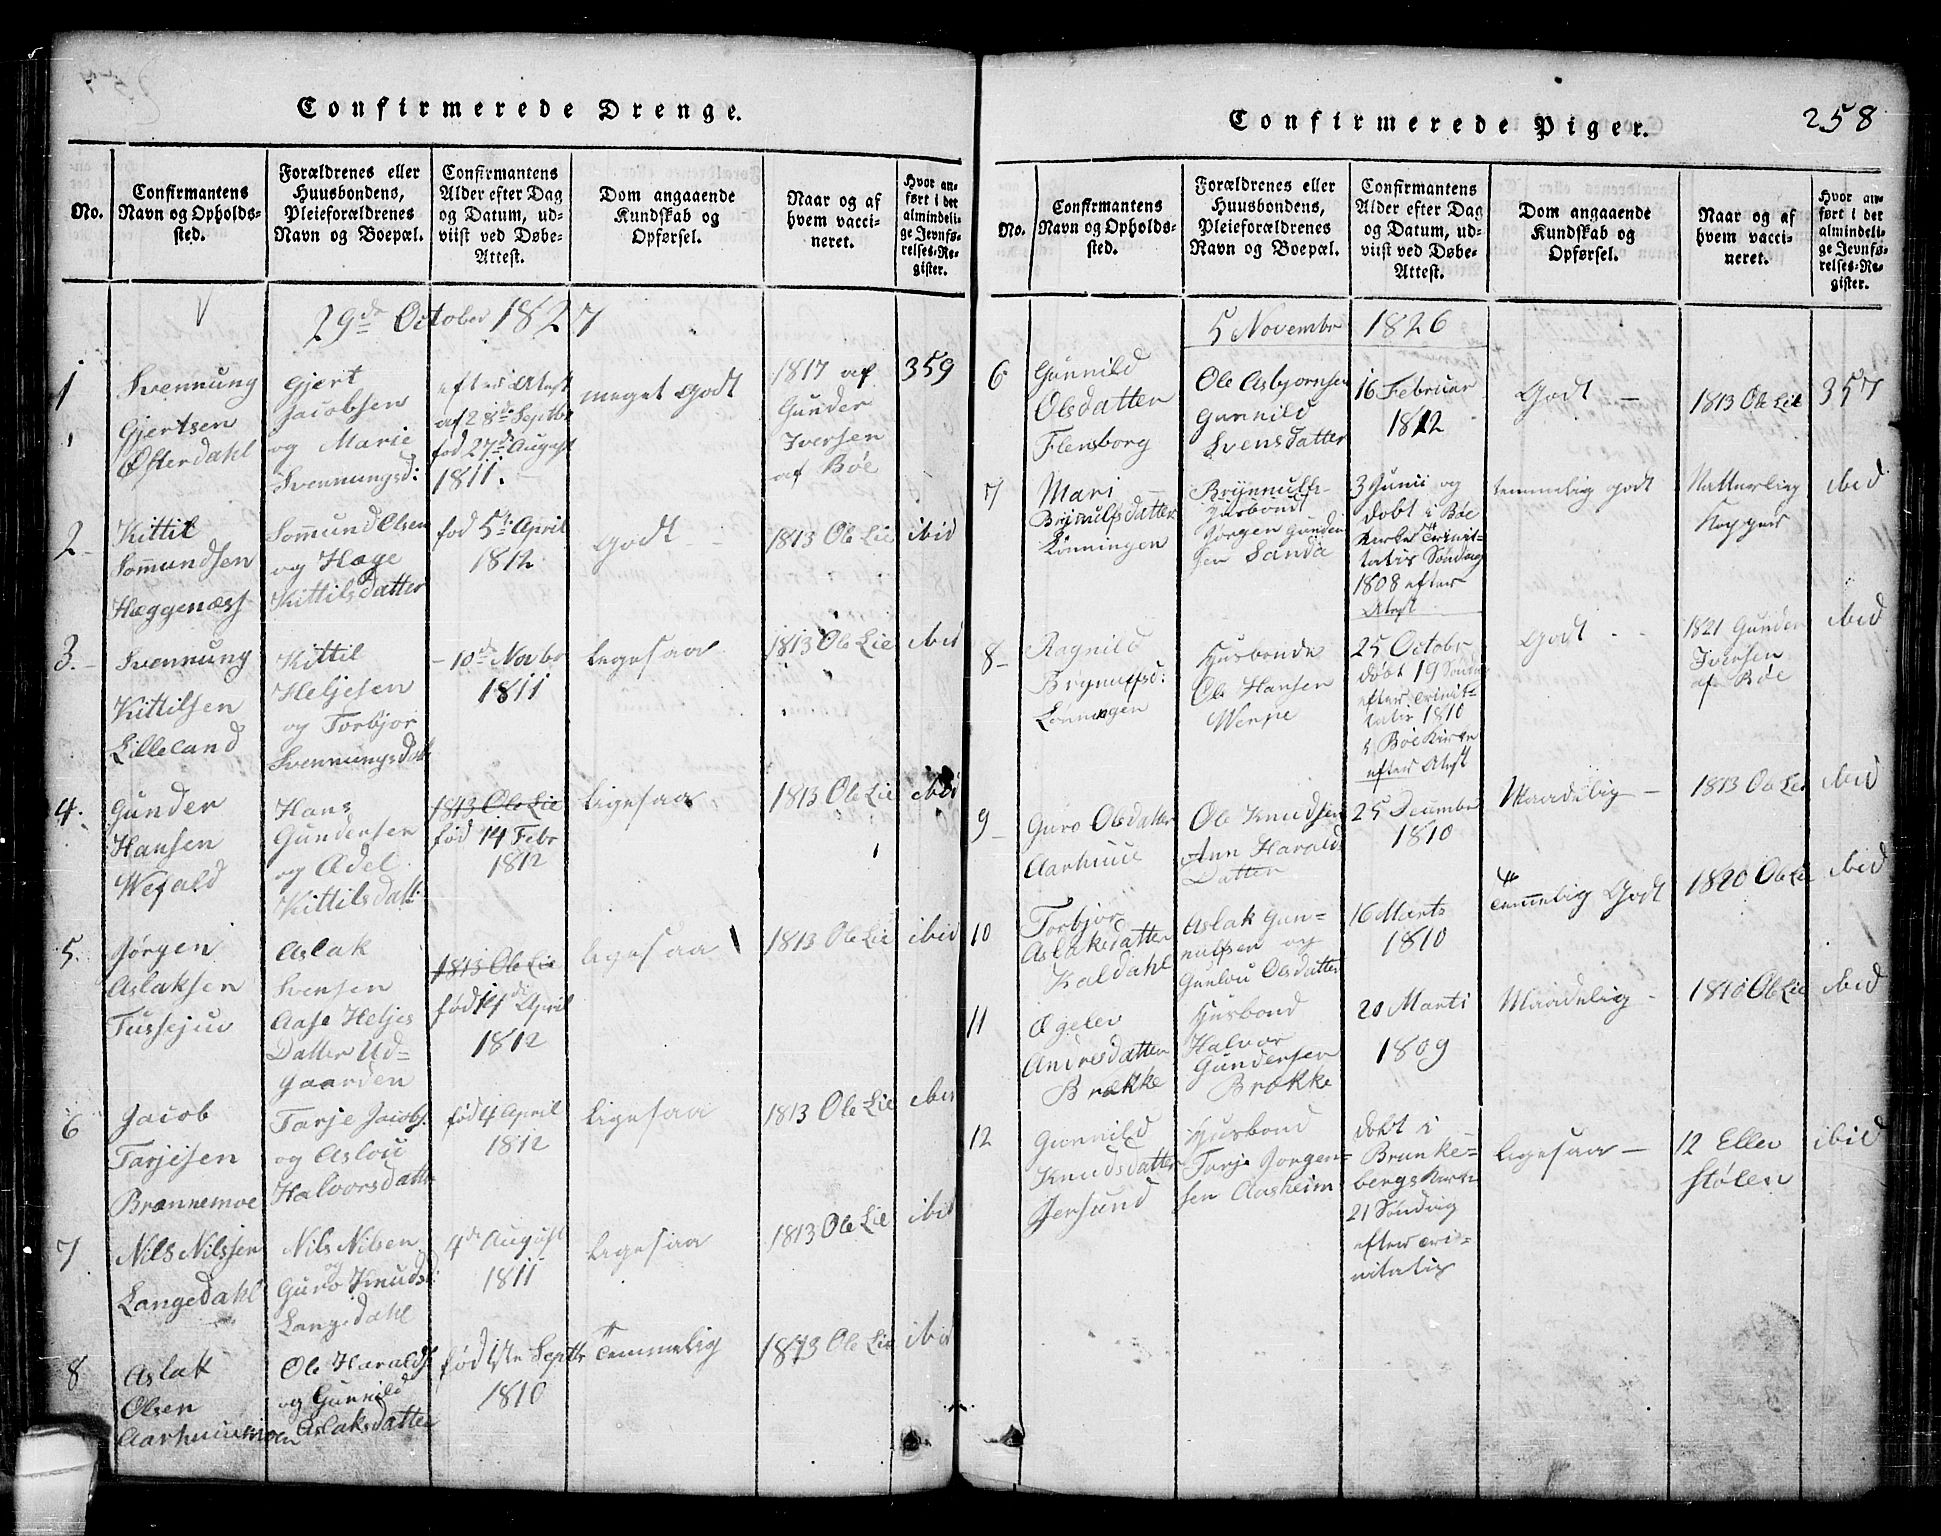 Confirmerede Drenge.
No.
Confirmantens
Navn og Opholds-
sted.
Forældrenes eller
Huusbondens,
Pleieforældrenes
Navn og Boepæl.
Confirmantens
Alder efter Dag
og Datum, ud-
viist ved Døbe-
Attest.
Dom angaaende
Kundskab og
Opførsel.
Naar og af
hvem vacci-
neret.
Hvor an-
ført i det
almindeli-
ge Jevnfø-
relses-Re-
gister.
29de October 1827
1
Svennung
Gjertsen
Østerdahl
Gjert
Jacobsen
og Marie
Svennungsd:
efter Atest
af 28de Septbr
fød 27de August
1811.
meget Godt
1817 af
Gunder
Iversen
af Bøe
359
2
Kittil
Sommundsen
Hæggenæss
Sommund Olsen
og Hæge
Kittilsdatter
fød 5te April
1812
Godt
1813 Ole Lie
ibid
3.
Svennung
Kittilsen
Lilleland
Kittil
Heljesen
og Torbjor
Svennungsdatt
10de Novbr
1811
Ligesaa
1813 Ole Lie
ibid
4.
Gunder
Hansen
Wefald
Hans
Gundersen
og Adel
Kittilsdatt:
1813 Ole Lie
fød 14 Febr
1812
Ligesaa
1813 Ole Lie
ibid
5.
Jørgen
Aslaksen
Tussejuv
Aslak
Svensen
Aase Heljes
Datter Ud-
Gaarden
1813 Ole Lie
fød 14de April
1812
Ligesaa
1813 Ole Lie
ibid
6
Jacob
Tarjesen
Brænnemoe
Tarje Jacobs.
og Aslou
Halvorsdatt
fød 4 April
1812
Ligesaa
1813 Ole Lie
ibid
7
Nils Nilssen
Langedahl
Nils Nilsen
og
Guro Knudsd:
Langedahl
4de August
1811
Ligesaa
1813 Ole Lie
ibid
8
Aslak
Olsen
Aarhuusmoen
Ole Haralds.
og Gunnild
Aslaksdatter
fød 1ste Septbr
1810
Temmelig
1813 Ole Lie
ibid
Confirmerede Piger.
258
No.
Confirmantens
Navn og Opholds-
sted.
Forældrenes eller
Huusbondens,
Pleieforældrenes
Navn og Boepæl.
Confirmantens
Alder efter Dag
og Datum, ud-
viist ved Døbe-
Attest.
Dom angaaende
Kundskab og
Opførsel.
Naar og af
hvem vacci-
neret.
Hvor an-
ført i det
almindeli-
ge Jevnfø-
relses-Re-
gister.
5 Novembr 1826
6
Gunnild
Olsdatter
Flensborg
Ole Asbjornsen
Gunnild
Svensdatter
16 Februar
1812
Godt
1813 Ole Lie
357
7
Mari
Brynulfsdatter
Lønningen
Brynnulf
Husbond
Jørgen Gunder
sen Sanda
3 Junii og
døbt i Bøe
Kirke Trinit-
tatis Søndag
1808 efter
Atest
temmelig godt
Natturlige
Kopper
ibid
8
Ragnild
Brynulfsd:
Lønningen
Husbonde
Ole Hansen
Werpe
25 Octobr
døbt 19 Sønda
efter Trinit-
tatis 1810
i Bøe Kirke
efter Atest
Godt
1821 Gunder
Iversen
af Bøe
ibid
9
Guro Olsdatter
Aarhuus
Ole Knudsen
Ann Harald
Datter
25 Decembr
1810
Maadelig
1813 Ole Lie
ibid
10
Torbjor
Aslaksdatter
Kaldahl
Aslak Gun-
nulfsen og
Gunlou Olsdatter
16 Marts
1810
Temmelig Godt
1810 Ole Lie
ibid
11
Egelev
Andresdatter
Brække
Husbond
Halvor
Gundersen
Brække
20 Marti
1809
Maadelig
1810 Ole Lie
ibid
12
Gunnild
Knudsdatter
Jersund
Husbond
Tarje Jorgen-
sen Aasheim
døbt i
Brunke-
bergs Kirke
21 Søndag
efter Tri-
nitatis
Ligesaa
12 Eller
Stølen
ibid